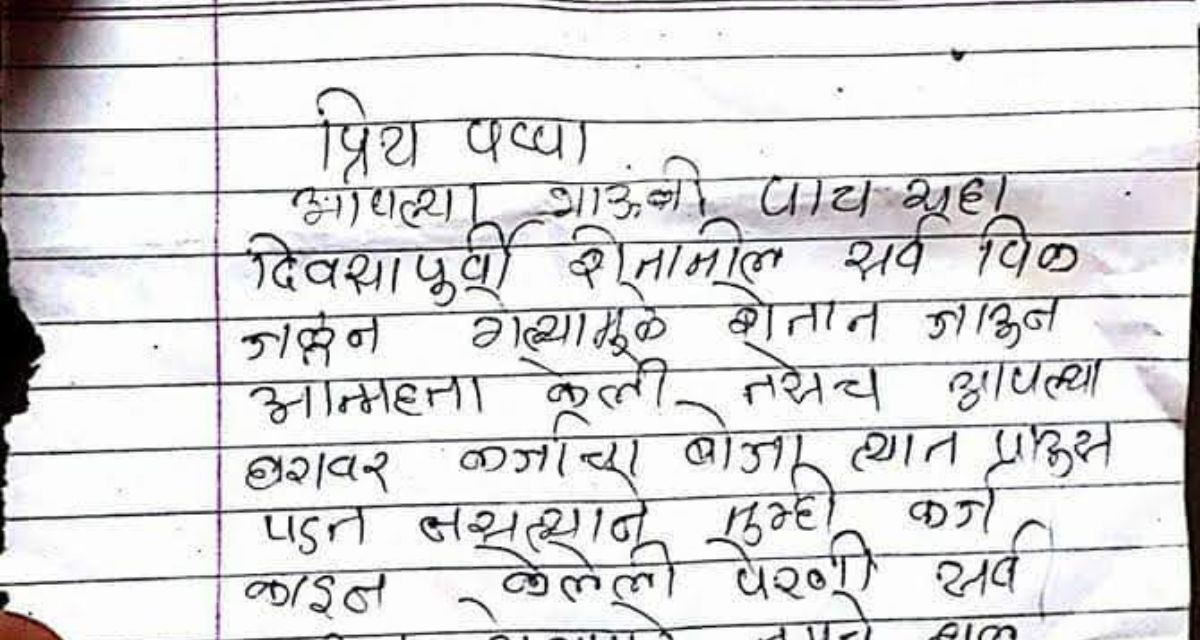 प्रिय पप्पा
आपल्या भाऊंनी पाच सहा
दिवसापूर्वी शेतामील सर्व पिक
जळुन गेल्यामुळे शेतात जाऊन
आत्महत्ता केली तसेच आपल्या
घरावर कर्जाचा बोजा त्यात प्राऊस
पडत नसल्याने तुम्ही कर्ज
काडुन केलेली पेरणी सर्व